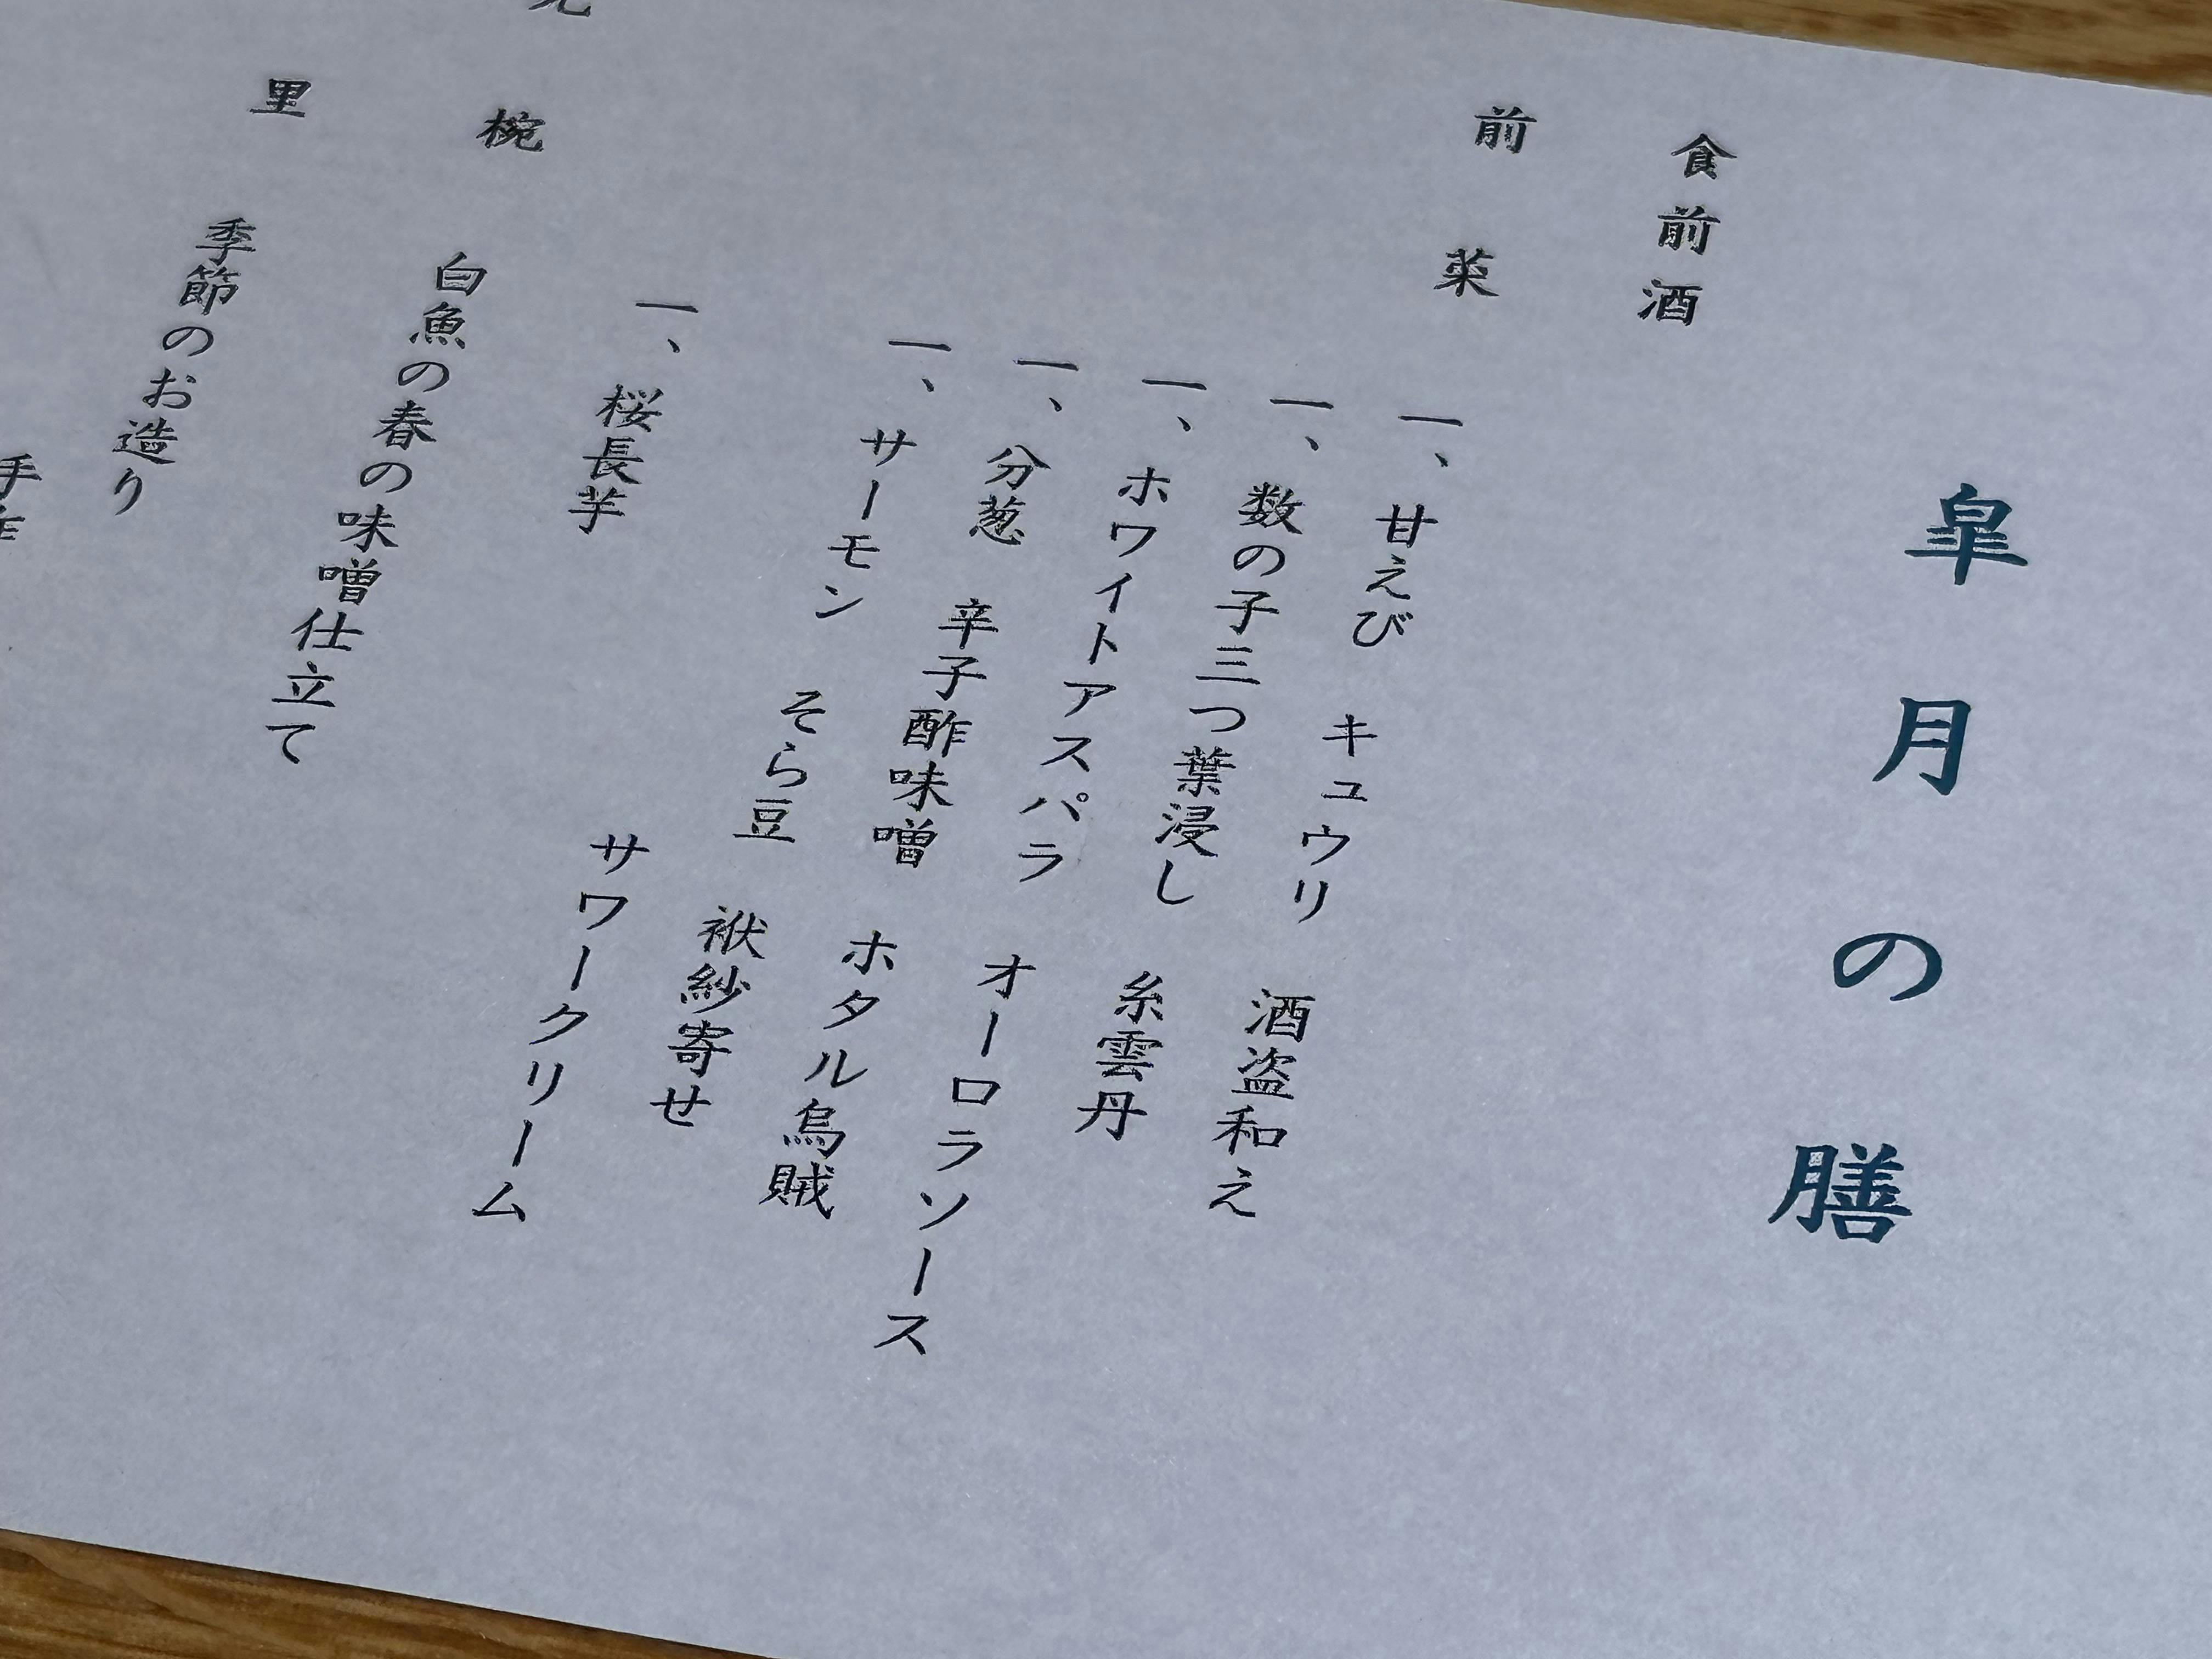 皐月の膳
食前酒
前菜
一、甘えび　キュウリ　酒盗和え
一、数の子三つ葉浸し　糸雲丹
一、ホワイトアスパラ　オーロラソース
一、分葱　辛子酢味噌　ホタル烏賊
一、サーモン　そら豆　袱紗寄せ
一、桜長芋　サワークリーム
椀　白魚の春の味噌仕立て
里　季節のお造り
手